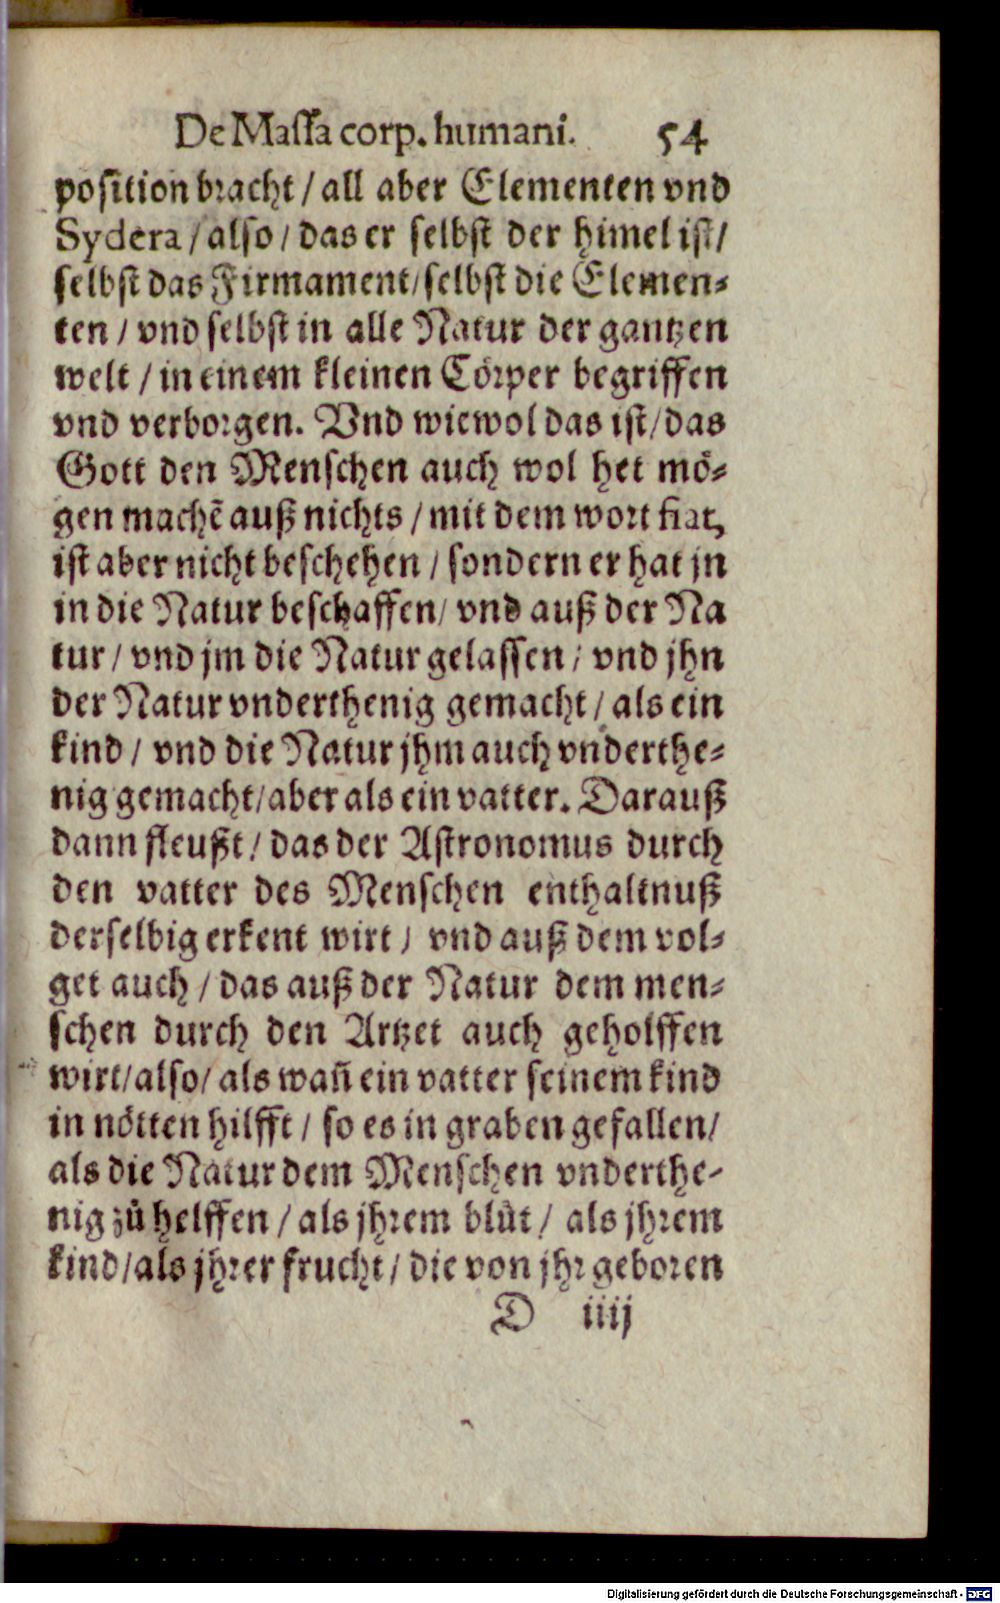 De Massa corp. humani. 54
position bracht / all aber Elementen vnd
Sydera / also / das er selbst der himel ist /
selbst das Firmament / selbst die Elemen-
ten / vnd selbst in alle Natur der gantzen
welt / in einem kleinen Cörper begriffen
vnd verborgen. Vnd wiewol das ist / das
Gott den Menschen auch wol het mö-
gen machē auß nichts / mit dem wort fiat,
ist aber nicht beschehen / sondern er hat jn
in die Natur beschaffen / vnd auß der Na
tur / vnd jm die Natur gelassen / vnd jhn
der Natur vnderthenig gemacht / als ein
kind / vnd die Natur jhm auch vnderthe-
nig gemacht / aber als ein vatter. Darauß
dann fleußt / das der Astronomus durch
den vatter des Menschen enthaltnuß
derselbig erkent wirt / vnd auß dem vol-
get auch / das auß der Natur dem men-
schen durch den Artzet auch geholffen
wirt / also / als wañ ein vatter seinem kind
in nötten hilfft / so es in graben gefallen /
als die Natur dem Menschen vnderthe-
nig zů helffen / als jhrem blůt / als jhrem
kind / als jhrer frucht / die von jhr geboren
D iiij
Digitalisierung gefördert durch die Deutsche Forschungsgemeinschaft - DFG